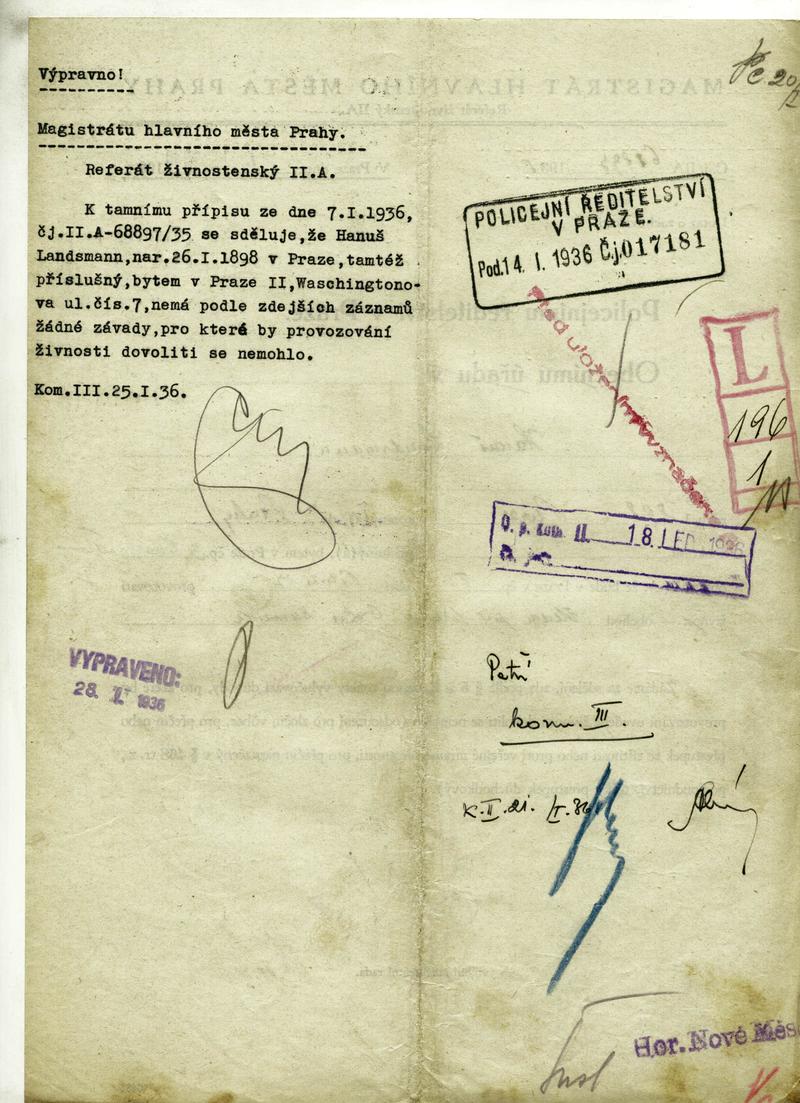 Výpravno!
Magistrátu hlavního města Prahy.
Referát živnostenský II.A.
K tamnímu přípisu ze dne 7.I.1936,
čj.II.A-68897/35 se sděluje,že Hanuš
Landsmann,nar.26.I.1898 v Praze,tamtéž
příslušný,bytem v Praze II,Waschingtono-
va ul.čís.7,nemá podle zdejších záznamů
žádné závady,pro které by provozování
živnosti dovoliti se nemohlo.
Kom.III.25.I.36.
VYPRAVENO:
28. I. 1936
20/2
POLICEJNÍ ŘEDITELSTVÍ
V PRAZE.
Pod.14. I. 1936 Č.j.017181
L
196
1
18. LED. 1936
Patří
kom. III.
K.II. 21. I. 36
Hor. Nové Měs